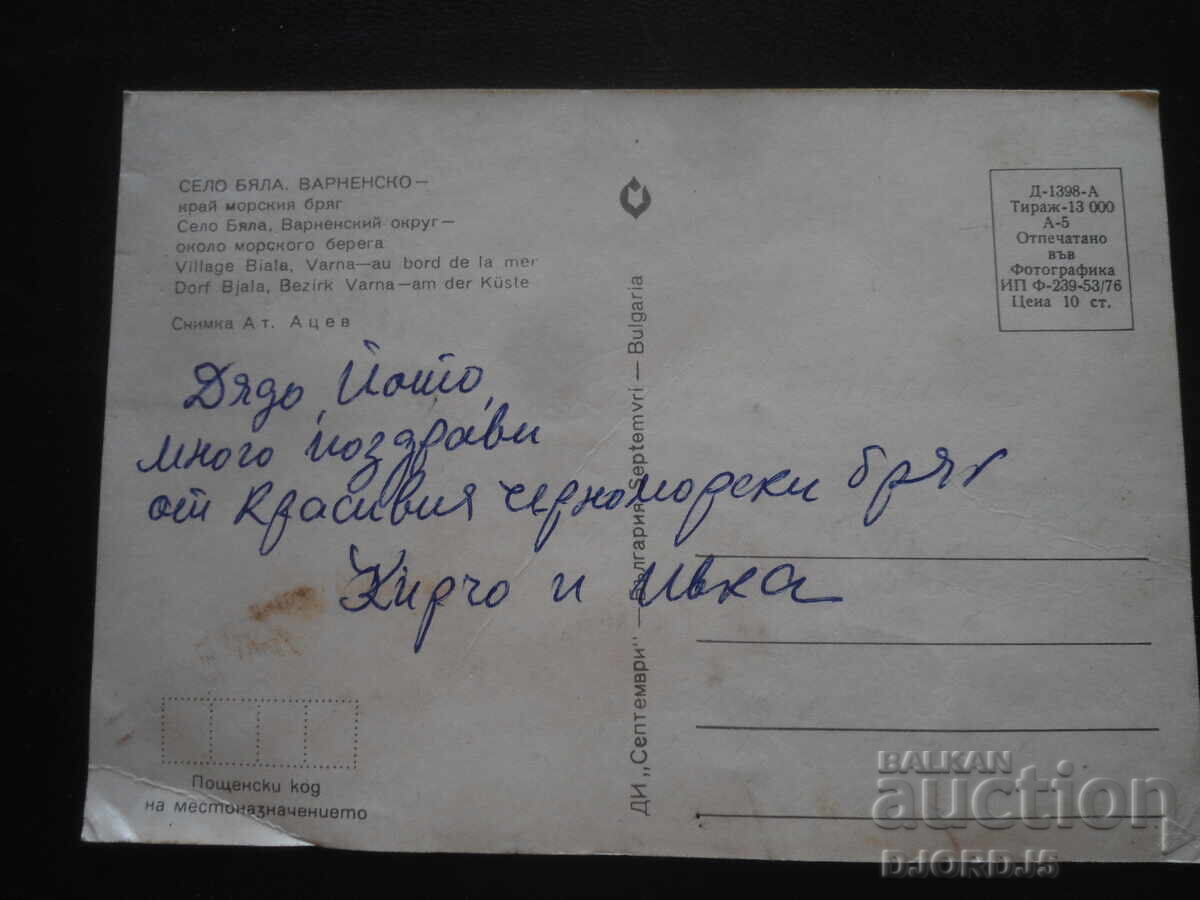 СЕЛО БЯЛА, ВАРНЕНСКО—
край морския бряг
Село Бяла, Варненский округ—
около морского берега
Village Biala, Varna—au bord de la mer
Dorf Bjala, Bezirk Varna—am der Küste
Снимка Ат. Ацев
Дядо Йото,
много поздрави
от красивия черноморски бряг
Кирчо и Ивка
Пощенски код
на местоназначението
ДИ „Септември" — България Septemvri — Bulgaria
Д-1398-А
Тираж-13 000
А-5
Отпечатано
във
Фотографика
ИП Ф-239-53/76
Цена 10 ст.
BALKAN
auction
DJORDJ5